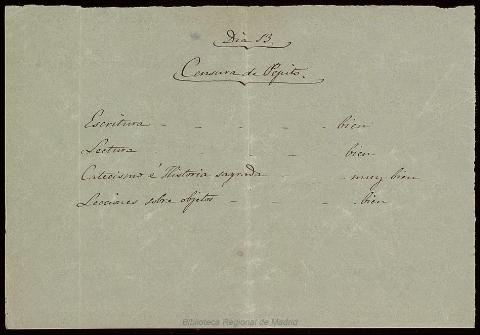 Dia 13.
Censura de Pepito.
Escritura - - - - - bien
Lectura - - - - bien
Catecismo é Historia sagrada - - muy bien
Lecciones sobre objetos - - - - bien
Biblioteca Regional de Madrid